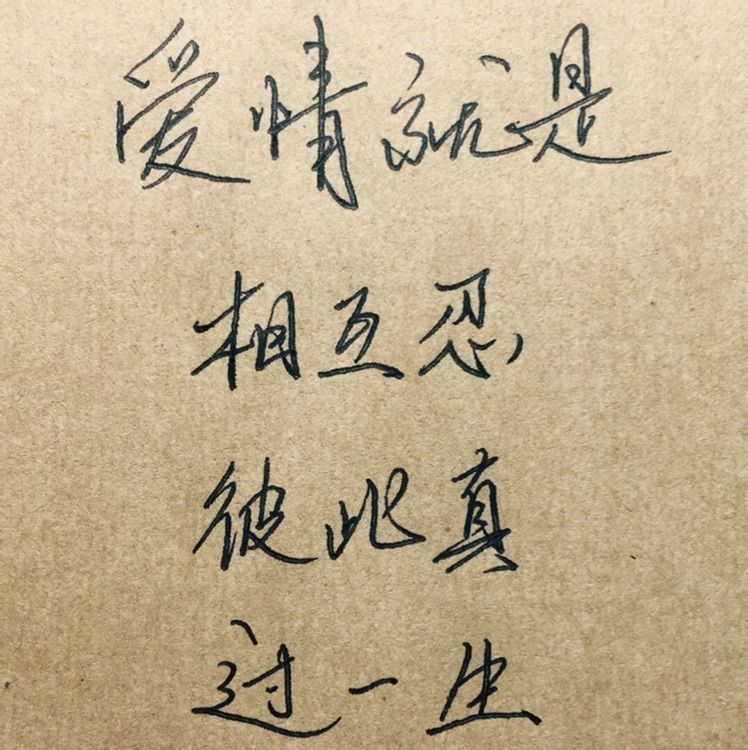 爱情就是
相互忍
彼此真
过一生